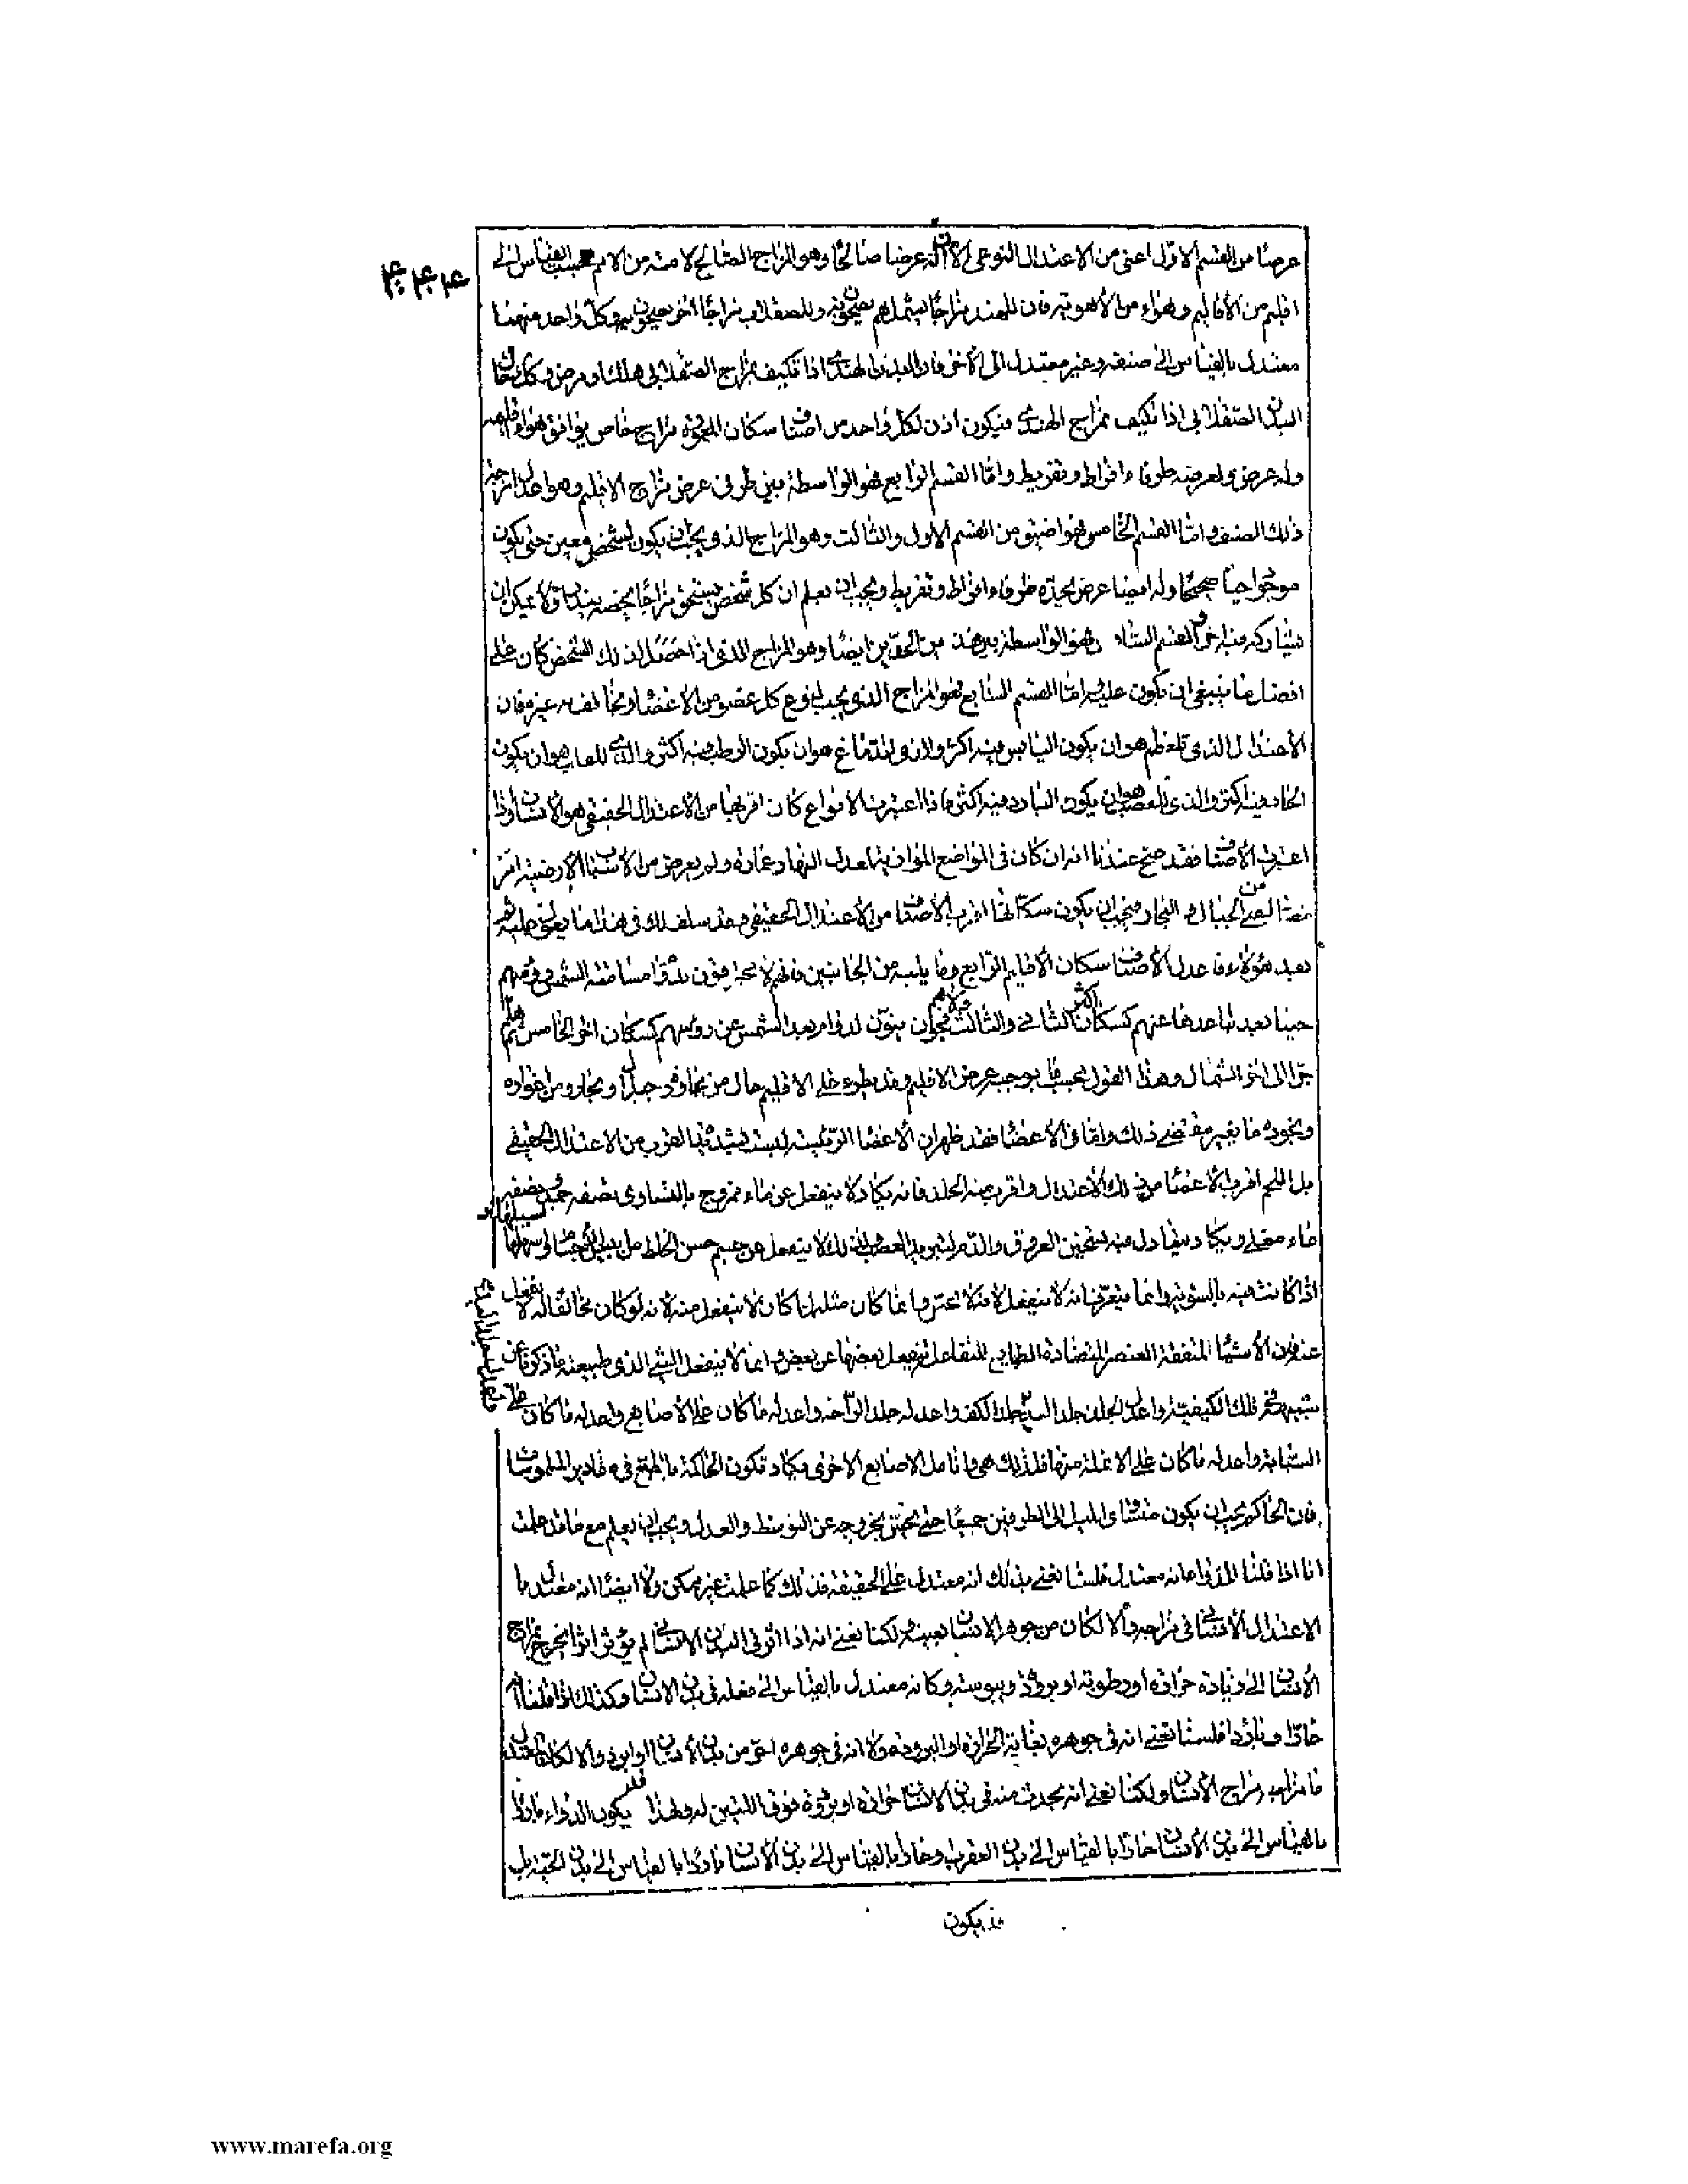 ۴۴۴
عرضا من القسم الاول اعنى من الاعتدال النوعى الا ان له عرضا صالحا وهو المزاج الصالح لامة من الامم بحسب القياس الى
اقليم من الاقاليم وهواء من الاهوية فان للهند مزاجا يشملهم يصحون به وللصقلاب مزاجا اخر يصحون به وكل واحد منهما
معتدل بالقياس الى صنفه وغير معتدل الى الاخر فان البدن الهندى اذا تكيف بمزاج الصقلابى هلك او مرض وكك حال
البدن الصقلابى اذا تكيف بمزاج الهندى فيكون اذن لكل واحد من اصناف سكان المعمورة مزاج خاص يوافق هواء اقليمه
وله عرض ولعرضه طرفا افراط وتفريط واما القسم الرابع فهو الواسطة بين طرفى عرض مزاج الاقليم وهو اعدل امزجة
ذلك الصنف واما القسم الخامس فهو اضيق من القسم الاول والثالث وهو المزاج الذى يجب ان يكون لشخص معين حتى يكون
موجودا حيا صحيحا وله ايضا عرض يحده طرفا افراط وتفريط ويجب ان يعلم ان كل شخص يستحق مزاجا يخصه يندر او لا يمكن ان
يشاركه فيه اخر القسم السادس فهو الواسطة بين هذين الحدين ايضا وهو المزاج الذى اذا حصل لذلك الشخص كان على
افضل ما ينبغى ان يكون عليه اما القسم السابع فهو المزاج الذى يجب لنوع كل عضو من الاعضاء ويخالف به غيره فان
الاعتدال الذى للعظم هو ان يكون اليابس فيه اكثر والذى للدماغ هو ان يكون الرطب فيه اكثر والذى للقلب هو ان يكون
الحار فيه اكثر والذى للعصب هو ان يكون البارد فيه اكثر فاذا اعتبرت الانواع كان اقربها من الاعتدال الحقيقى هو الانسان واذا
اعتبرت الاصناف فقد صح عندنا انه ان كان فى المواضع الموازية لمعدل النهار عمارة ولم يعرض من الاسباب الارضية امر
مضاد اعنى من الجبال والبحار فيجب ان يكون سكانها اقرب الاصناف من الاعتدال الحقيقى
بعد هؤلاء فاعدل الاصناف سكان الاقليم الرابع وما يليه من الجانبين فانهم لا محترقون بدوام مسامتة الشمس رؤسهم
حينا بعد تباعدها عنهم كسكان اكثر الثانى والثالث ولا هم فجون نيون لدوام بعد الشمس عن رؤسهم كسكان اخر الخامس ثم هلم
جرا الى اخر الشمال وهذا القول بحسب ما يوجبه عرض الاقليم وقد يطرء على الاقليم حال من مجاورة جبال او بحار ومن اغواره
ونجوده ما يغير مقتضى ذلك واما فى الاعضاء فقد ظهر ان الاعضاء الرئيسة ليست شديدة القرب من الاعتدال الحقيقى
بل اللحم اقرب الاعضاء من ذلك الاعتدال واقرب منه الجلد فانه يكاد لا ينفعل عن ماء ممزوج بالتساوى نصفه جمد ونصفه
ماء مغلى ويكاد يتعادل فيه تسخين العروق والدم لتبريد العصب وكذلك لا ينفعل عن جسم حسن الخلط من ايبس الاجسام واسيلها
اذا كانت فيه بالسوية وانما يتعرف انه لا ينفعل لانه لا يحس وانما كان مثله لما كان لا ينفعل منه لانه لو كان مخالفا له لا نفعل
عنه فان الاشياء المتفقة العنصر المتضادة الطبايع للتفاعل ينفعل بعضها عن بعض وانما لا ينفعل الشىء الذى طبيعته ما ذكرنا عن
شبيهه فى تلك الكيفية واعدل الجلد جلد اليد ثم جلد الكف واعدله جلد الراحة واعدله ما كان على الاصابع واعدله ما كان على
السبابة واعدله ما كان على الانملة منها فلذلك هى وانامل الاصابع الاخرى يكاد تكون الحاكمة بالطبع فى مقادير الملموسات
فان الحاكم يجب ان يكون متساوى الميل الى الطرفين جميعا حتى يحس بخروجه عن التوسط والعدل ويجب ان يعلم مع ما قد علمت
انا اذا قلنا للدواء انه معتدل فلسنا نعنى بذلك انه معتدل على الحقيقة فذلك كما علمت غير ممكن ولا ايضا انه معتدل با
لاعتدال الانسانى فى مزاجه والا لكان من جوهر الانسان بعينه ولكنا نعنى انه اذا اثر فى البدن الانسانى لم يؤثر اثرا يخرج مزاج
الانسان الى زيادة حرارة او رطوبة او برودة ويبوسة وكانه معتدل بالقياس الى فعله فى بدن الانسان وكذلك اذا قلنا انه
حار او بارد فلسنا نعنى انه فى جوهره بغاية الحرارة او البرودة ولا انه فى جوهره احر من بدن الانسان او ابرد والا لكان المعتدل
ما مزاجه مزاج الانسان ولكنا نعنى انه يحدث منه فى بدن الانسان حرارة او برودة فوق اللتين له ولهذا قد يكون الدواء باردا
بالقياس الى بدن الانسان حارا بالقياس الى بدن العقرب وحارا بالقياس الى بدن الانسان باردا بالقياس الى بدن الحية بل
قد يكون
www.marefa.org